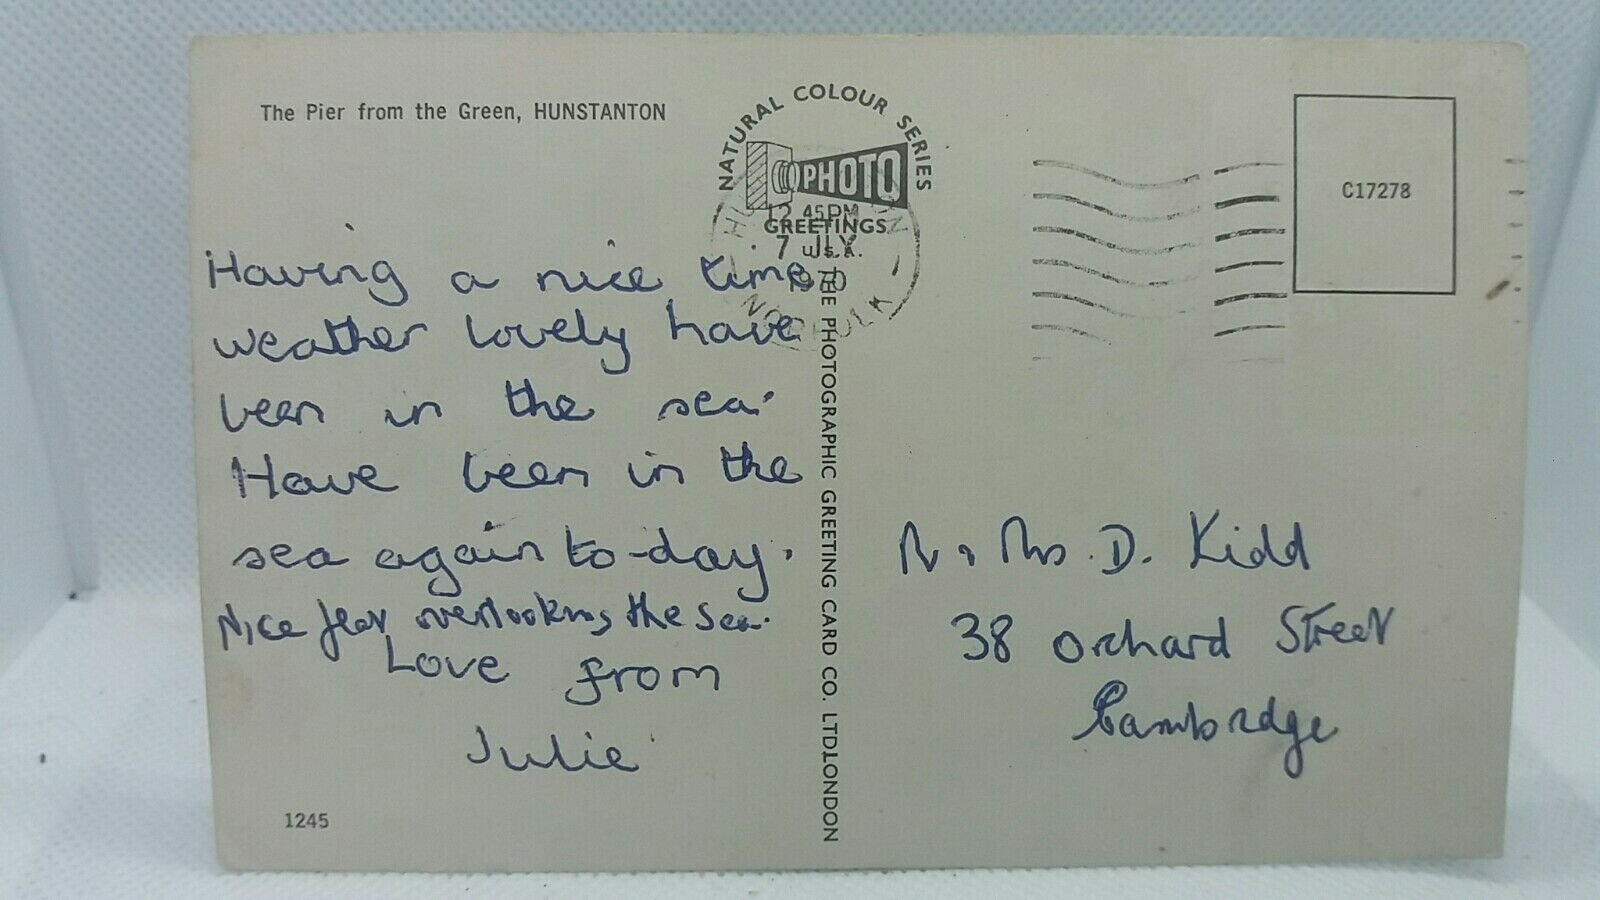 The Pier from the Green, HUNSTANTON
NATURAL COLOUR SERIES
PHOTO
GREETINGS
U.S.A.
12.45PM
7 JLY
NORFOLK
C17278
Having a nice time
weather lovely have
been in the sea.
Have been in the
sea again to-day.
Nice flat overlooking the sea.
Love from
Julie
1245
THE PHOTOGRAPHIC GREETING CARD CO. LTD, LONDON
Mr & Mrs. D. Kidd
38 Orchard Street
Cambridge